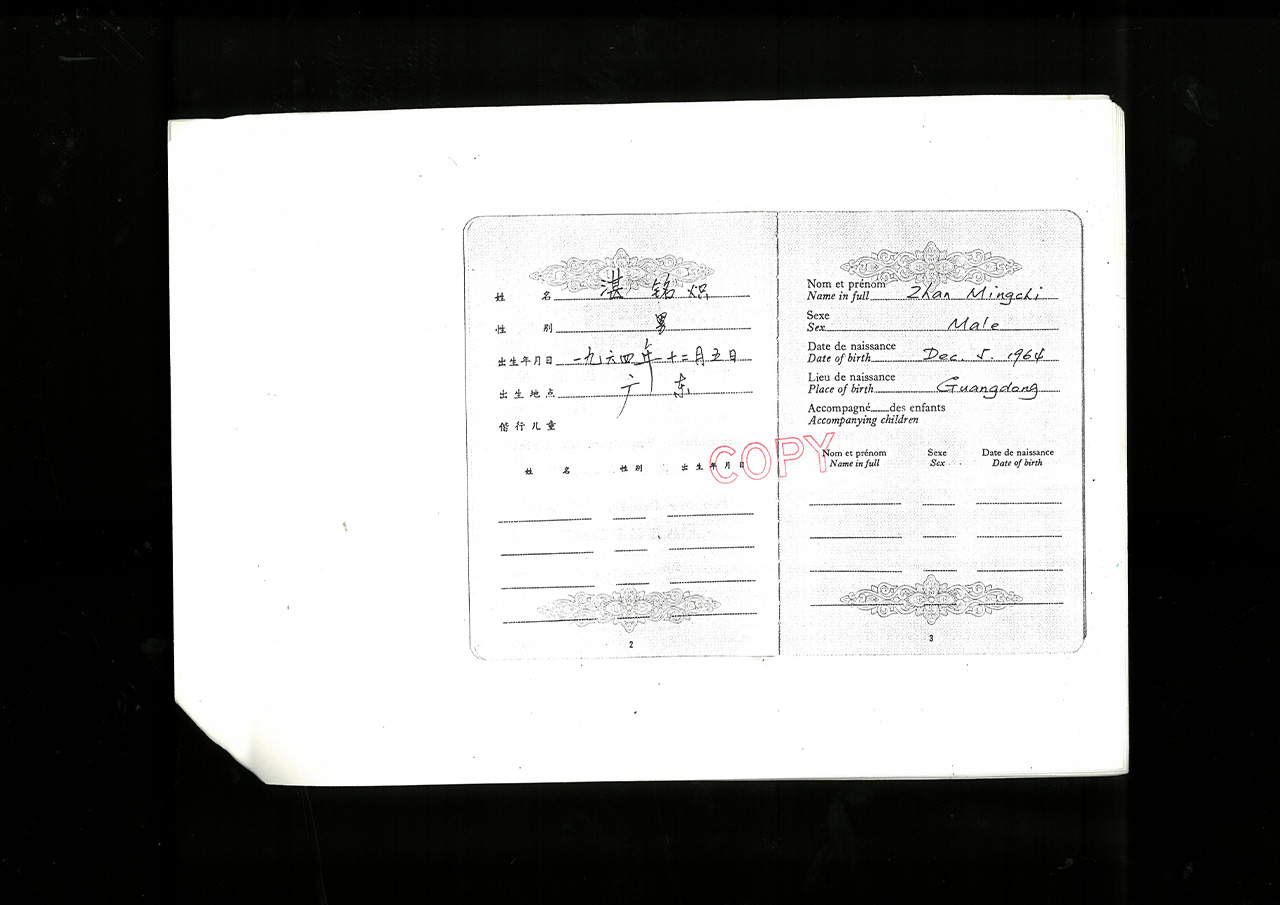 姓 名 湛铭炽
性 别 男
出生年月日 一九六四年十二月五日
出生地点 广东
偕行儿童
姓 名 性别 出生年月日
2
COPY
Nom et prénom
Name in full Zhan Mingchi
Sexe
Sex Male
Date de naissance
Date of birth Dec. 5. 1964
Lieu de naissance
Place of birth Guangdong
Accompagné des enfants
Accompanying children
Nom et prénom Sexe Date de naissance
Name in full Sex Date of birth
3